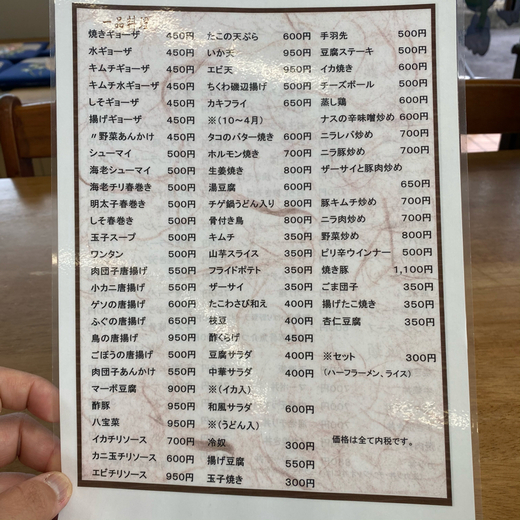 一品料理
焼きギョーザ 450円
水ギョーザ 450円
キムチギョーザ 450円
キムチ水ギョーザ 450円
しそギョーザ 450円
揚げギョーザ 450円
〃野菜あんかけ 450円
シューマイ 500円
海老シューマイ 550円
海老チリ春巻き 500円
明太子春巻き 500円
しそ春巻き 500円
玉子スープ 500円
ワンタン 500円
肉団子唐揚げ 550円
小カニ唐揚げ 550円
ゲソの唐揚げ 600円
ふぐの唐揚げ 650円
鳥の唐揚げ 950円
ごぼうの唐揚げ 500円
肉団子あんかけ 550円
マーボ豆腐 900円
酢豚 950円
八宝菜 950円
イカチリソース 700円
カニ玉チリソース 600円
エビチリソース 950円
たこの天ぷら 600円
いか天 950円
エビ天 950円
ちくわ磯辺揚げ 500円
カキフライ 650円
※(10～4月)
タコのバター焼き 600円
ホルモン焼き 700円
生姜焼き 800円
湯豆腐 600円
チゲ鍋うどん入り 800円
骨付き鳥 800円
キムチ 350円
山芋スライス 350円
フライドポテト 350円
ザーサイ 350円
たこわさび和え 400円
枝豆 400円
酢くらげ 450円
豆腐サラダ 400円
中華サラダ 400円
※(イカ入)
和風サラダ 600円
※(うどん入)
冷奴 300円
揚げ豆腐 550円
玉子焼き 300円
手羽先 500円
豆腐ステーキ 500円
イカ焼き 600円
チーズボール 500円
蒸し鶏 600円
ナスの辛味噌炒め 600円
ニラレバ炒め 700円
ニラ豚炒め 700円
ザーサイと豚肉炒め
650円
豚キムチ炒め 700円
ニラ肉炒め 700円
野菜炒め 600円
ピリ辛ウインナー 500円
焼き豚 1,100円
ごま団子 350円
揚げたこ焼き 350円
杏仁豆腐 350円
※セット 300円
(ハーフラーメン、ライス)
価格は全て内税です。